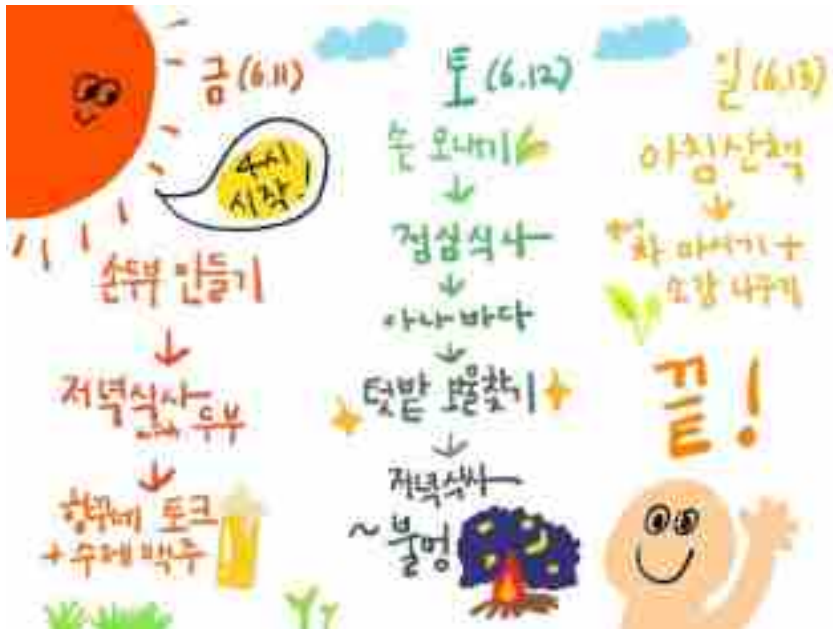 금 (6.11)
4시
시작!
손두부 만들기
↓
저녁식사
두부
↓
토크
+ 수제 맥주
토 (6.12)
손 모내기
↓
점심식사
↓
아나바다
↓
텃밭 보물찾기
↓
저녁식사
~ 불멍
일 (6.13)
아침산책
↓
차 마시기 +
소감 나누기
끝!